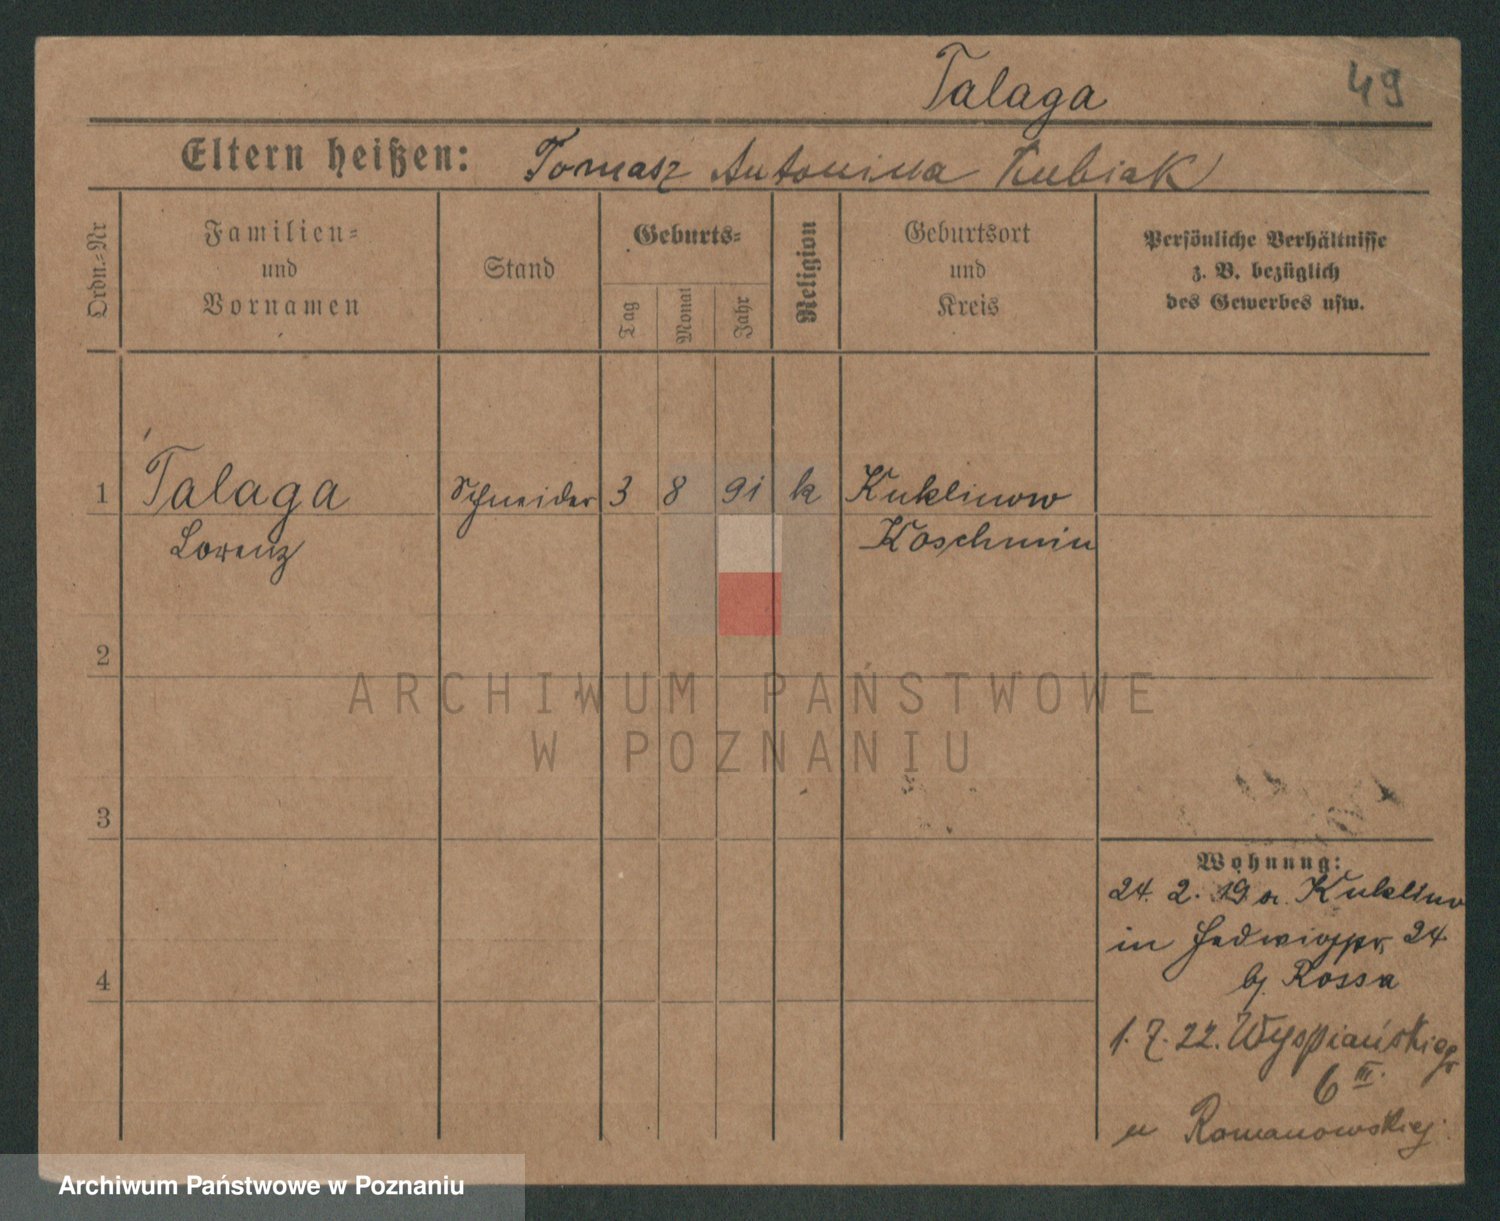 Talaga
49
Eltern heißen: Tomasz Antonina Kubiak
Ordn.=Nr
Familien=
und
Vornamen
Stand
Geburts=
Tag
Monat
Jahr
Religion
Geburtsort
und
Kreis
Persönliche Verhältnisse
z. B. bezüglich
des Gewerbes usw.
1 Talaga Schneider 3 8 91 k Kuklinow
Lorenz Koschmin
2
ARCHIWUM PAŃSTWOWE
W POZNANIU
3
4
Wohnung:
24. 2. 19 Kuklinow
in 24
bj. Rossa
1. 7. 22. Wyspiańskiego
6 III.
u Romanowskiej
Archiwum Państwowe w Poznaniu